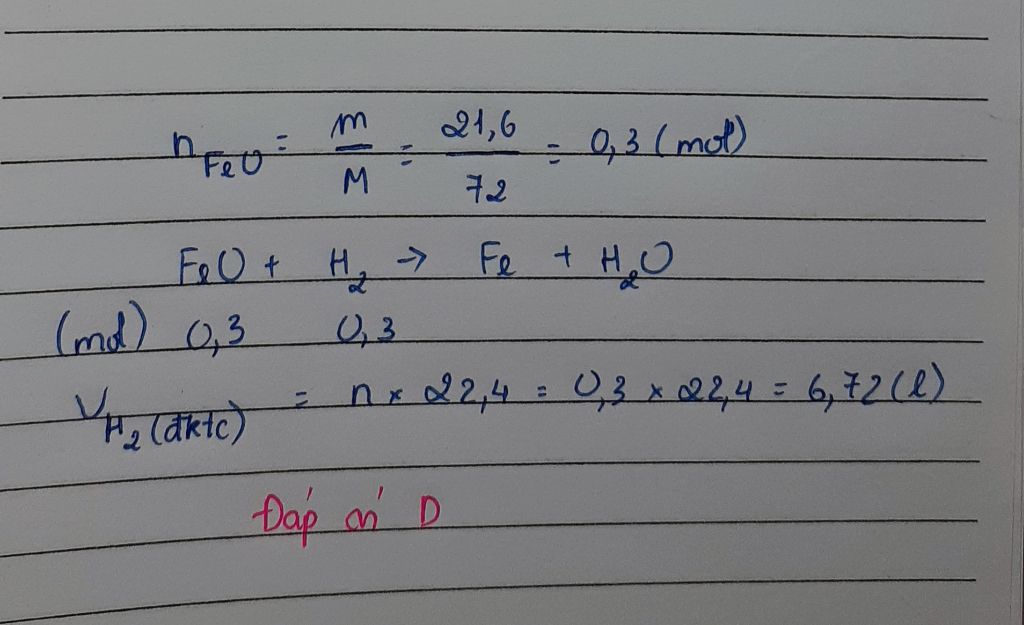 n FeO = m/M = 21,6/72 = 0,3 (mol)
FeO + H₂ → Fe + H₂O
(mol) 0,3 0,3
V H₂ (đktc) = n x 22,4 = 0,3 x 22,4 = 6,72 (l)
Đáp án D